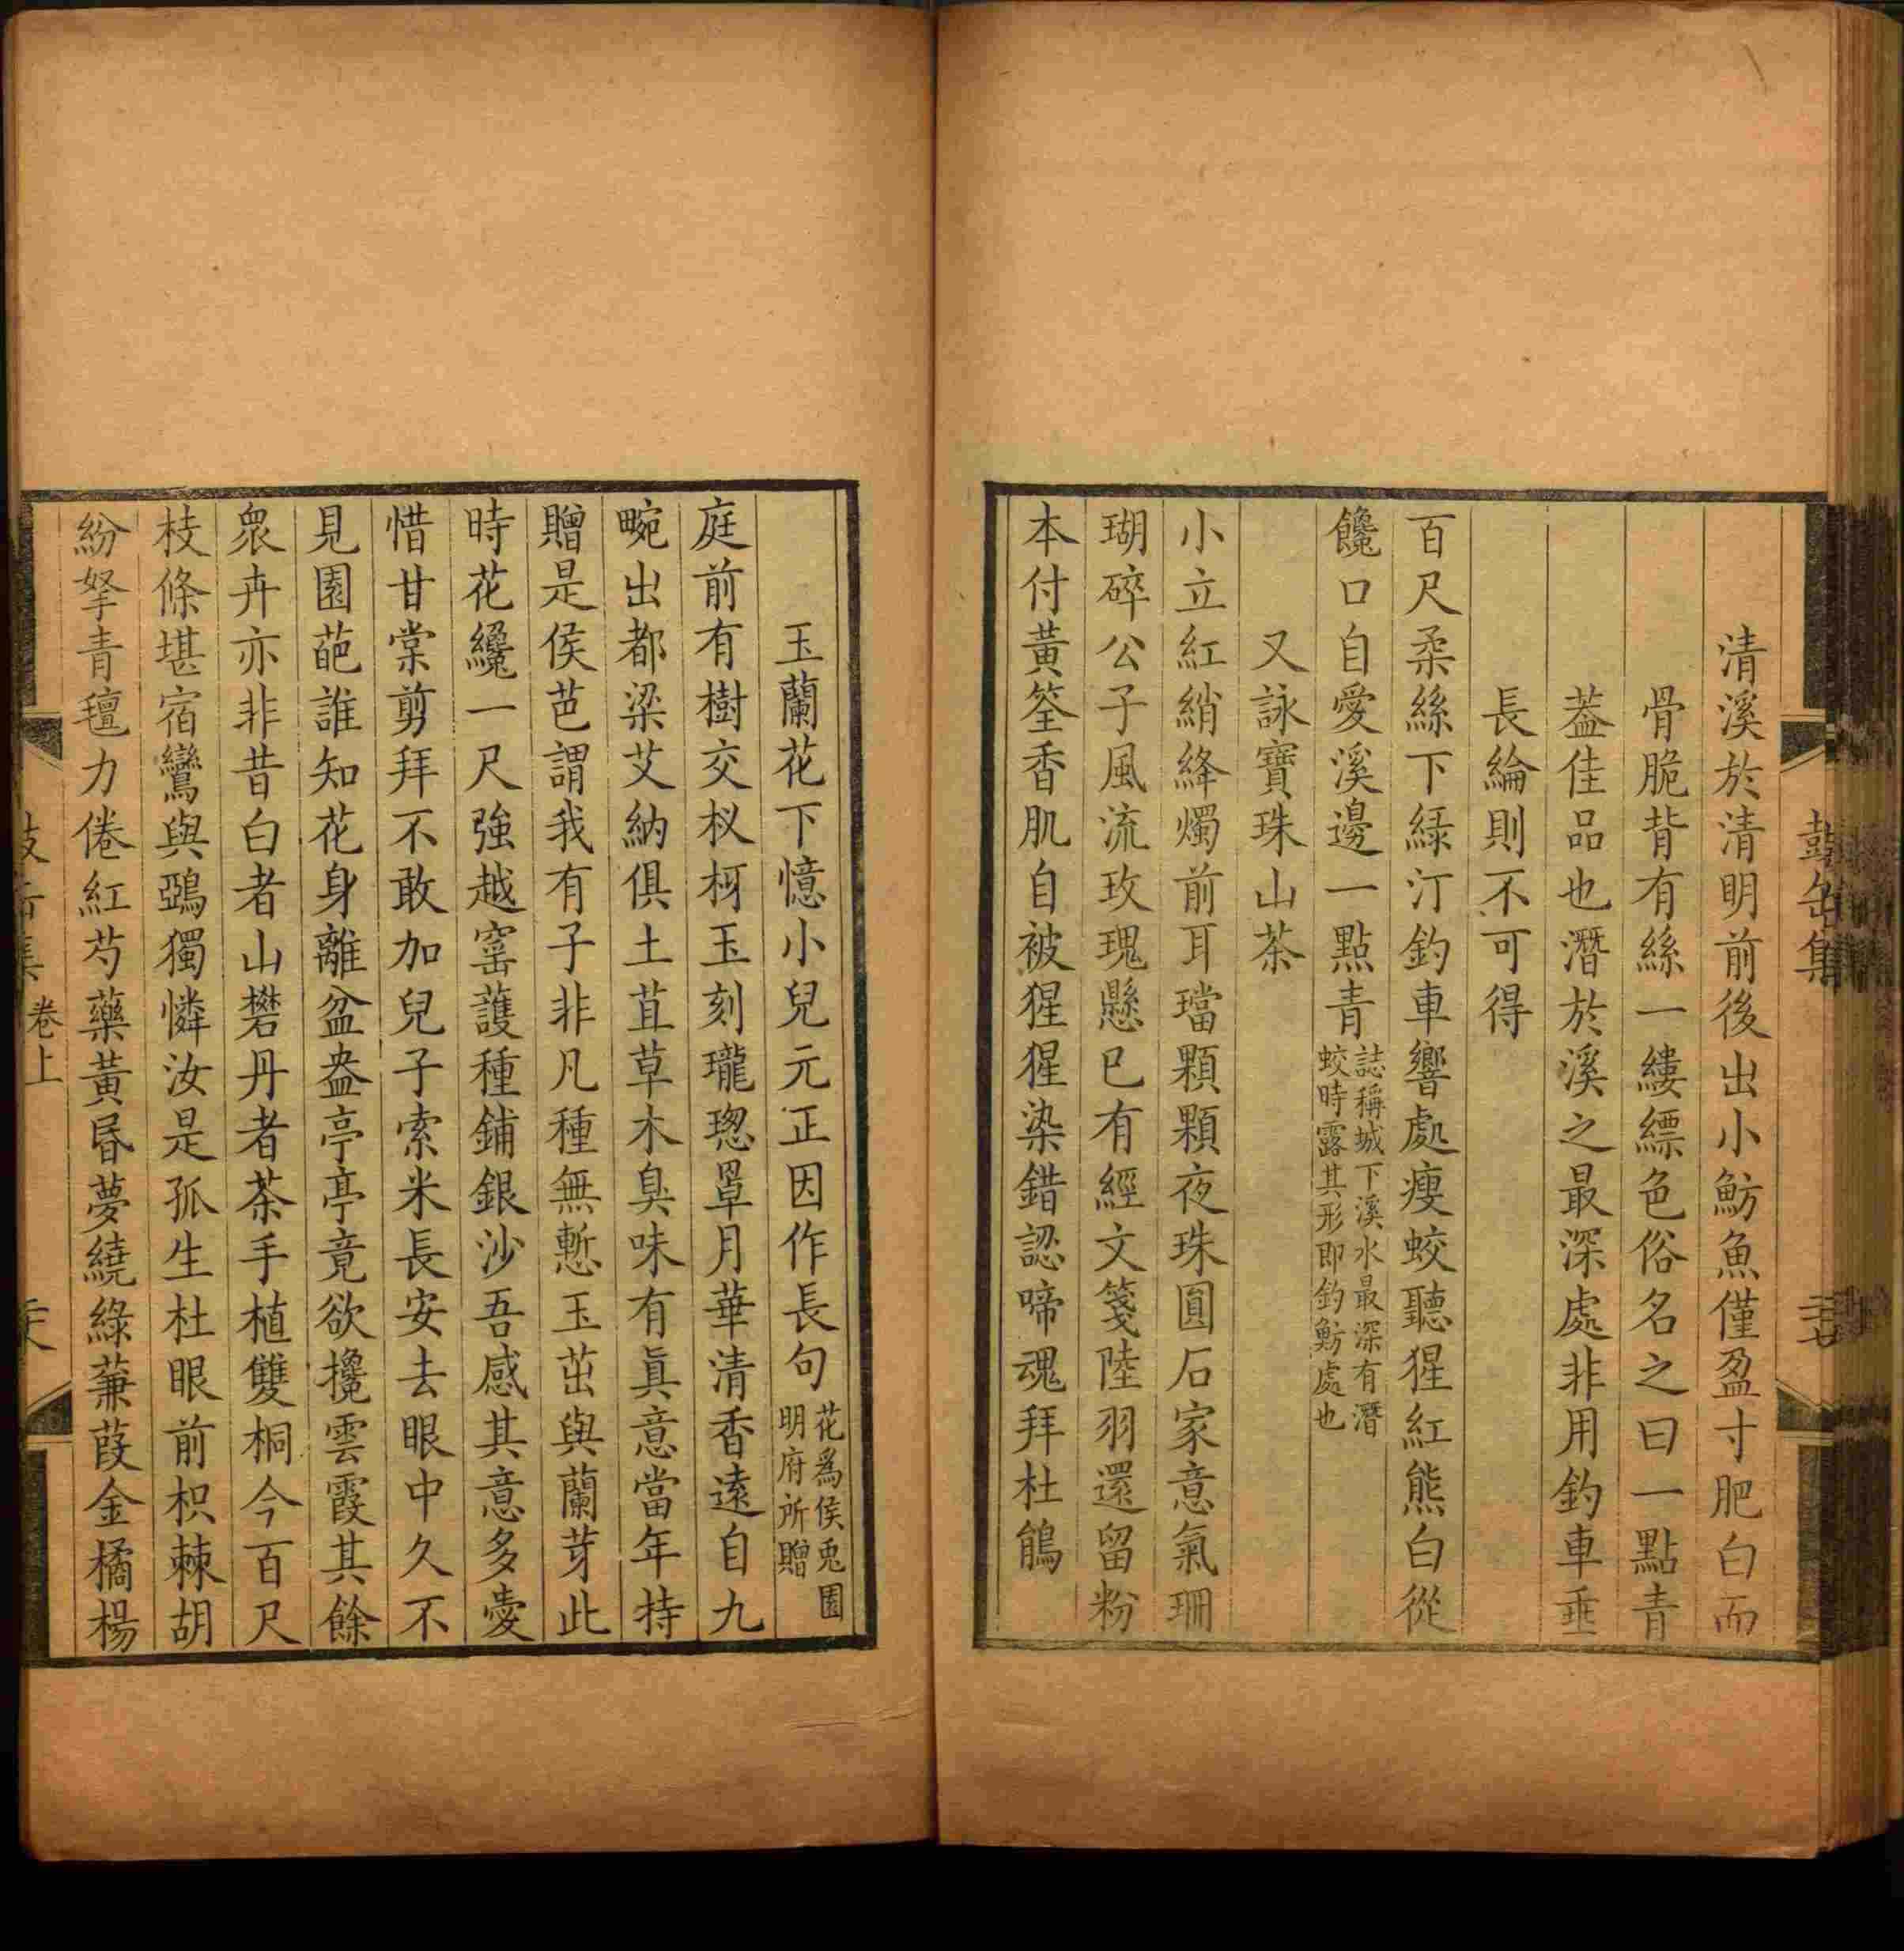 清溪於清明前後出小魴魚僅盈寸肥白而
骨脆背有絲一縷縹色俗名之曰一點青
葢佳品也潛於溪之最深處非用釣車垂
長綸則不可得
百尺柔絲下緑汀釣車響處瘦蛟聽猩紅熊白從
饞口自愛溪邊一點青誌稱城下溪水最深有潛蛟時露其形即釣魴處也
又詠寶珠山茶
小立紅綃絳燭前耳璫顆顆夜珠圓石家意氣珊
瑚碎公子風流玫瑰懸已有經文箋陸羽還留粉
本付黃筌香肌自被猩猩染錯認啼魂拜杜鵑
玉蘭花下憶小兒元正因作長句花爲侯兎園明府所贈
庭前有樹交杈枒玉刻瓏璁罩月華清香遠自九
畹出都梁艾納俱土苴草木臭味有眞意當年持
贈是侯芭謂我有子非凡種無慙玉茁與蘭芽此
時花纔一尺強越窰護種鋪銀沙吾感其意多愛
惜甘棠剪拜不敢加兒子索米長安去眼中久不
見園葩誰知花身離盆盎亭亭竟欲攙雲霞其餘
衆卉亦非昔白者山礬丹者茶手植雙桐今百尺
枝條堪宿鸞與鵶獨憐汝是孤生杜眼前枳棘胡
紛拏青氊力倦紅芍藥黃昏夢繞綠蒹葭金橘楊
卷上